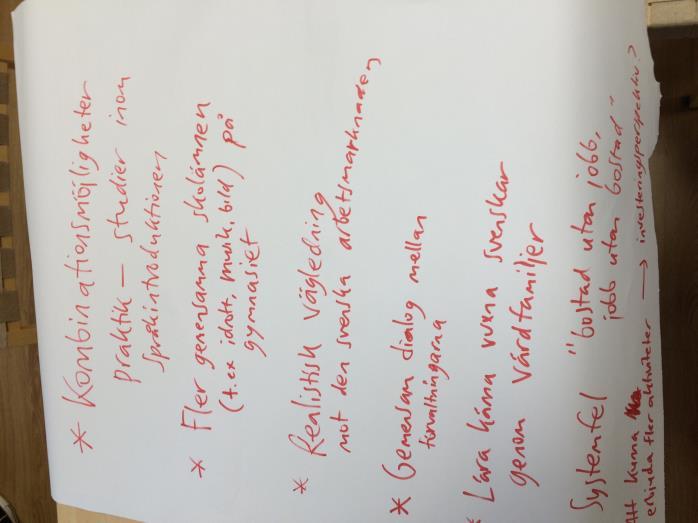 * Kombinationsmöjligheter
praktik – studier inom
språkintroduktionen
* Fler gemensamma skolämnen
(t.ex idrott, musik, bild) på
gymnasiet
* Realistisk vägledning
mot den svenska arbetsmarknaden
* Gemensam dialog mellan
förvaltningarna
* Lära känna vuxna svenskar
genom värdfamiljer
Systemfel "bostad utan jobb,
jobb utan bostad"
Att kunna
erbjuda fler aktiviteter → investeringsperspektiv?